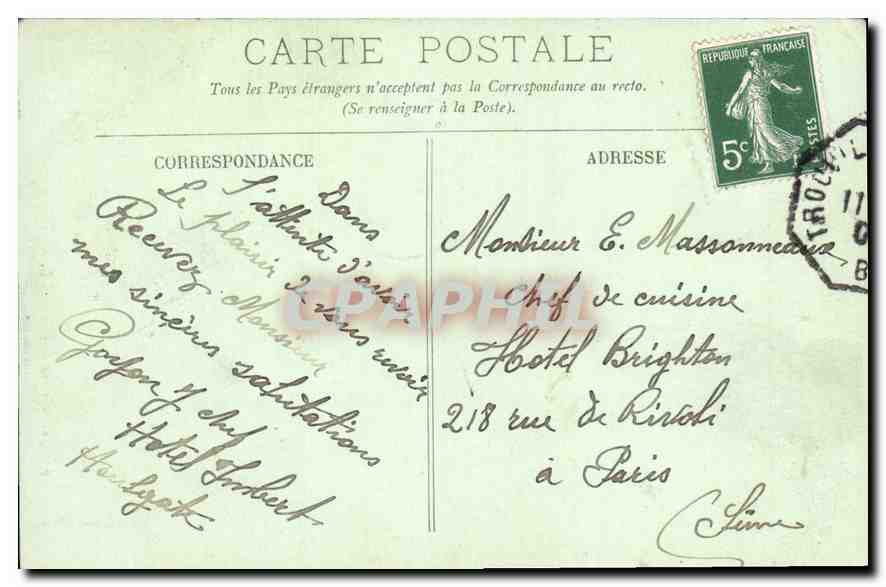 CARTE POSTALE
Tous les Pays étrangers n'acceptent pas la Correspondance au recto.
(Se renseigner à la Poste).
REPUBLIQUE FRANÇAISE
5c
POSTES
TROUVIL
11
B
CORRESPONDANCE
Dans
l'attente d'avoir
Le plaisir de vous revoir
Recevez Monsieur
mes sincères salutations
chef
Hotel Imbert
Houlgate
ADRESSE
Monsieur E. Massonneaux
Chef de cuisine
Hotel Brighton
218 rue de Rivoli
à Paris
(Seine
CPAPHIL